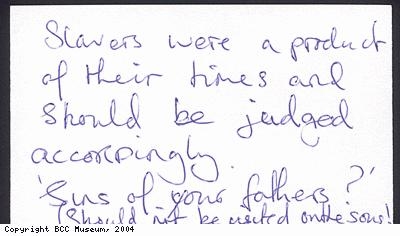 Slavers were a product
of their times and
should be judged
accordingly.
'Sins of your fathers?'
(Should not be visited on the sons!
Copyright BCC Museum, 2004